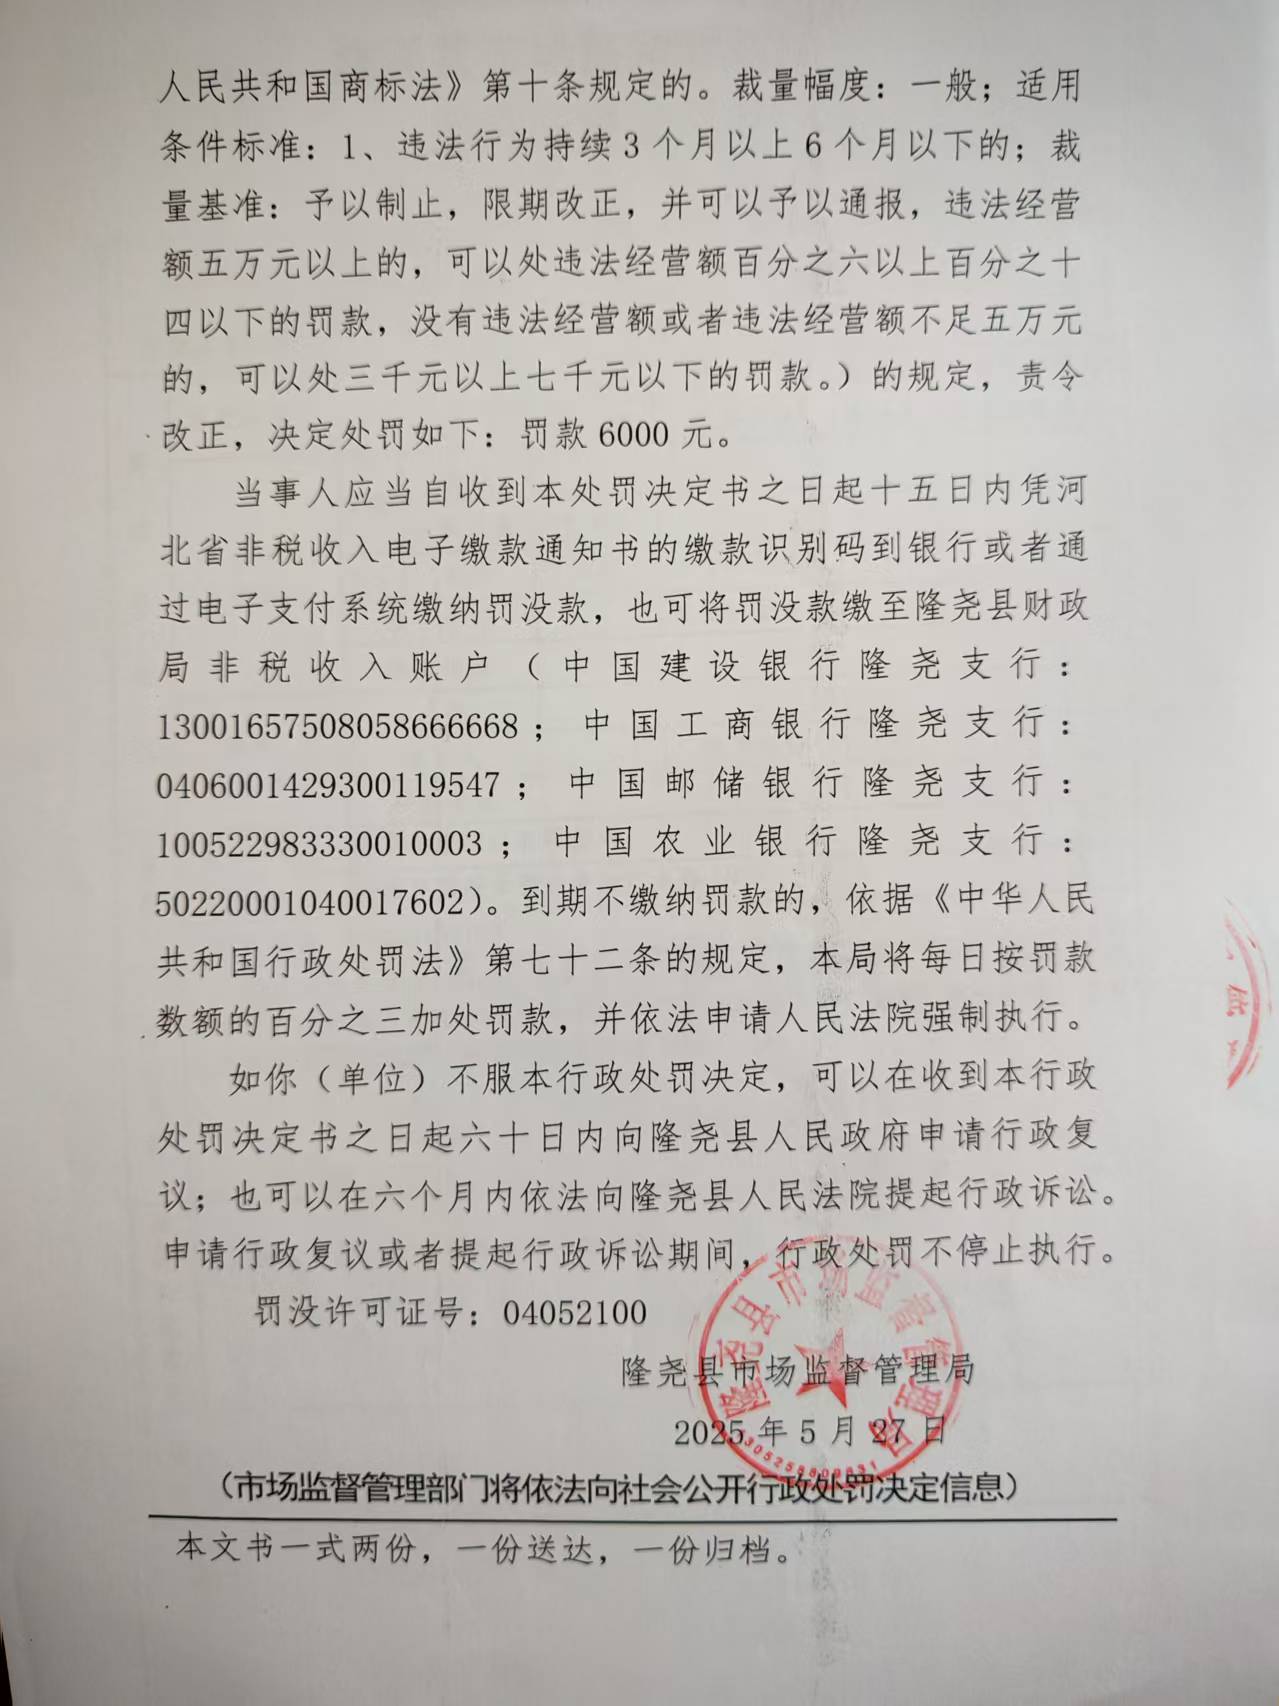 人民共和国商标法》第十条规定的。裁量幅度：一般；适用
条件标准：1、违法行为持续3个月以上6个月以下的；裁
量基准：予以制止，限期改正，并可以予以通报，违法经营
额五万元以上的，可以处违法经营额百分之六以上百分之十
四以下的罚款，没有违法经营额或者违法经营额不足五万元
的，可以处三千元以上七千元以下的罚款。）的规定，责令
改正，决定处罚如下：罚款6000元。
当事人应当自收到本处罚决定书之日起十五日内凭河
北省非税收入电子缴款通知书的缴款识别码到银行或者通
过电子支付系统缴纳罚没款，也可将罚没款缴至隆尧县财政
局非税收入账户（中国建设银行隆尧支行：
13001657508058666668；中国工商银行隆尧支行：
0406001429300119547；中国邮储银行隆尧支行：
100522983330010003；中国农业银行隆尧支行：
50220001040017602）。到期不缴纳罚款的，依据《中华人民
共和国行政处罚法》第七十二条的规定，本局将每日按罚款
数额的百分之三加处罚款，并依法申请人民法院强制执行。
如你（单位）不服本行政处罚决定，可以在收到本行政
处罚决定书之日起六十日内向隆尧县人民政府申请行政复
议；也可以在六个月内依法向隆尧县人民法院提起行政诉讼。
申请行政复议或者提起行政诉讼期间，行政处罚不停止执行。
罚没许可证号：04052100
隆尧县市场监督管理局
隆尧县市场监督管理局
2025年5月27日
（市场监督管理部门将依法向社会公开行政处罚决定信息）
本文书一式两份，一份送达，一份归档。